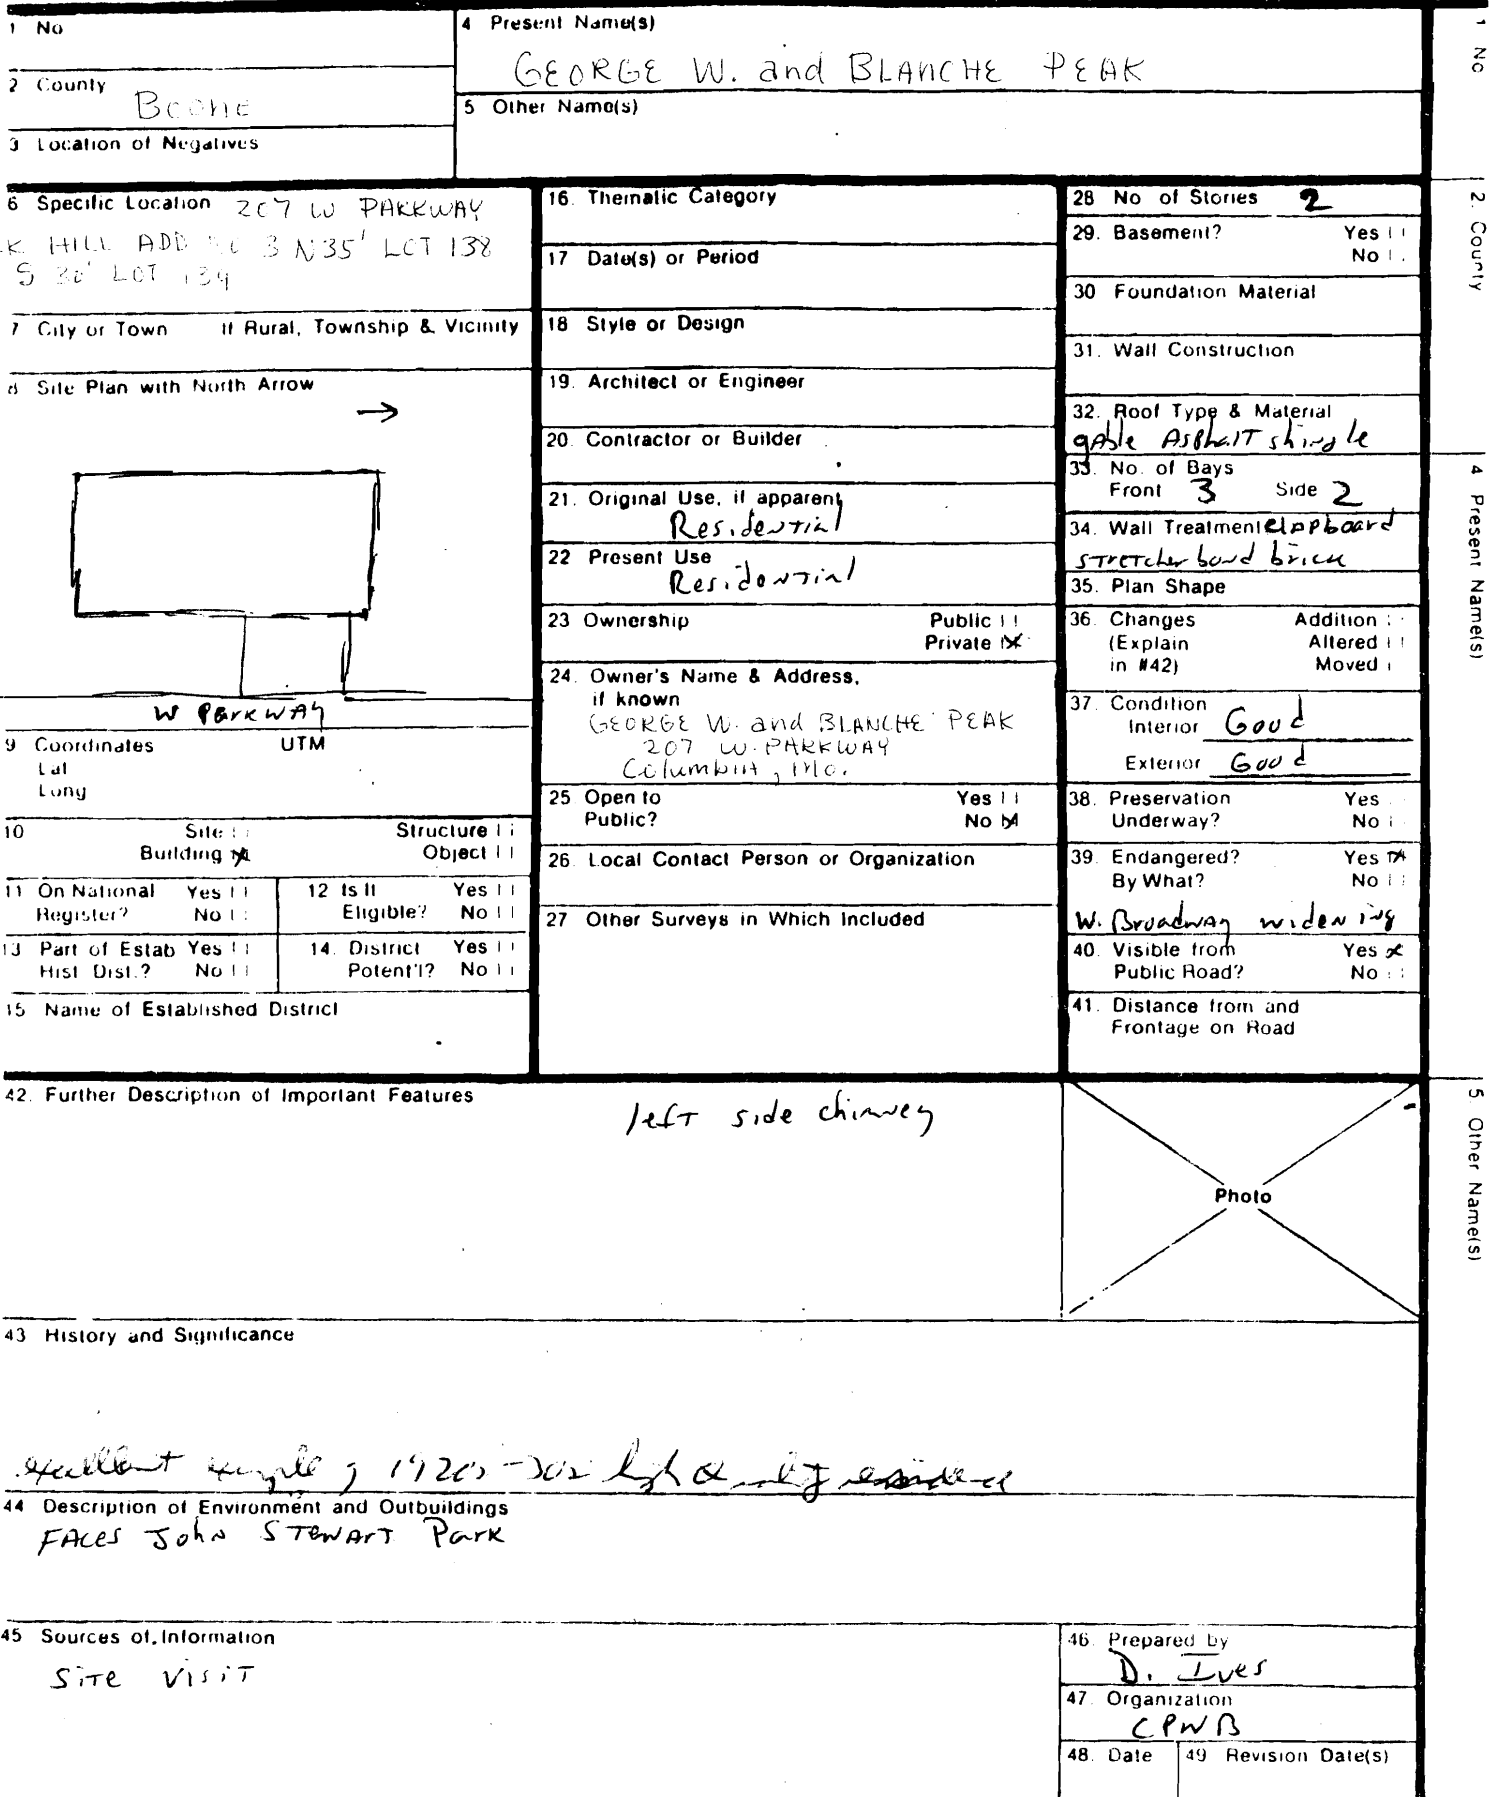 1 No
4 Present Name(s)
GEORGE W. and BLANCHE PEAK
2 County
Boone
5 Other Name(s)
3 Location of Negatives
6 Specific Location 207 W PARKWAY
K HILL ADD NO 3 N35' LOT 138
S 30' LOT 134
7 City or Town If Rural, Township & Vicinity
8 Site Plan with North Arrow
W Parkway
9 Coordinates UTM
Lat
Long
10 Site
Structure
Building
Object
11 On National Register? Yes No
12 Is It Eligible? Yes No
13 Part of Estab Hist Dist.? Yes No
14. District Potent'l? Yes No
15 Name of Established District
16. Thematic Category
17 Date(s) or Period
18 Style or Design
19. Architect or Engineer
20. Contractor or Builder
21. Original Use, if apparent
Residential
22 Present Use
Residential
23 Ownership Public
Private
24. Owner's Name & Address,
if known
GEORGE W. and BLANCHE PEAK
207 W. PARKWAY
Columbia, Mo.
25 Open to Yes
Public? No
26. Local Contact Person or Organization
27 Other Surveys in Which Included
28 No of Stories 2
29. Basement? Yes
No
30 Foundation Material
31. Wall Construction
32. Roof Type & Material
gable Asphalt shingle
33. No. of Bays
Front 3 Side 2
34. Wall Treatment clapboard
stretcher bond brick
35. Plan Shape
36. Changes Addition
(Explain Altered
in #42) Moved
37. Condition
Interior Good
Exterior Good
38. Preservation Yes
Underway? No
39. Endangered? Yes
By What? No
W. Broadway widening
40. Visible from Yes
Public Road? No
41. Distance from and
Frontage on Road
42. Further Description of Important Features
left side chimney
Photo
43 History and Significance
excellent example of 1920s-30s high quality residence
44 Description of Environment and Outbuildings
FACES John STEWART Park
45 Sources of Information
Site visit
46. Prepared by
D. Ives
47. Organization
CPWB
48. Date
49 Revision Date(s)
1 No
2. County
4 Present Name(s)
5 Other Name(s)